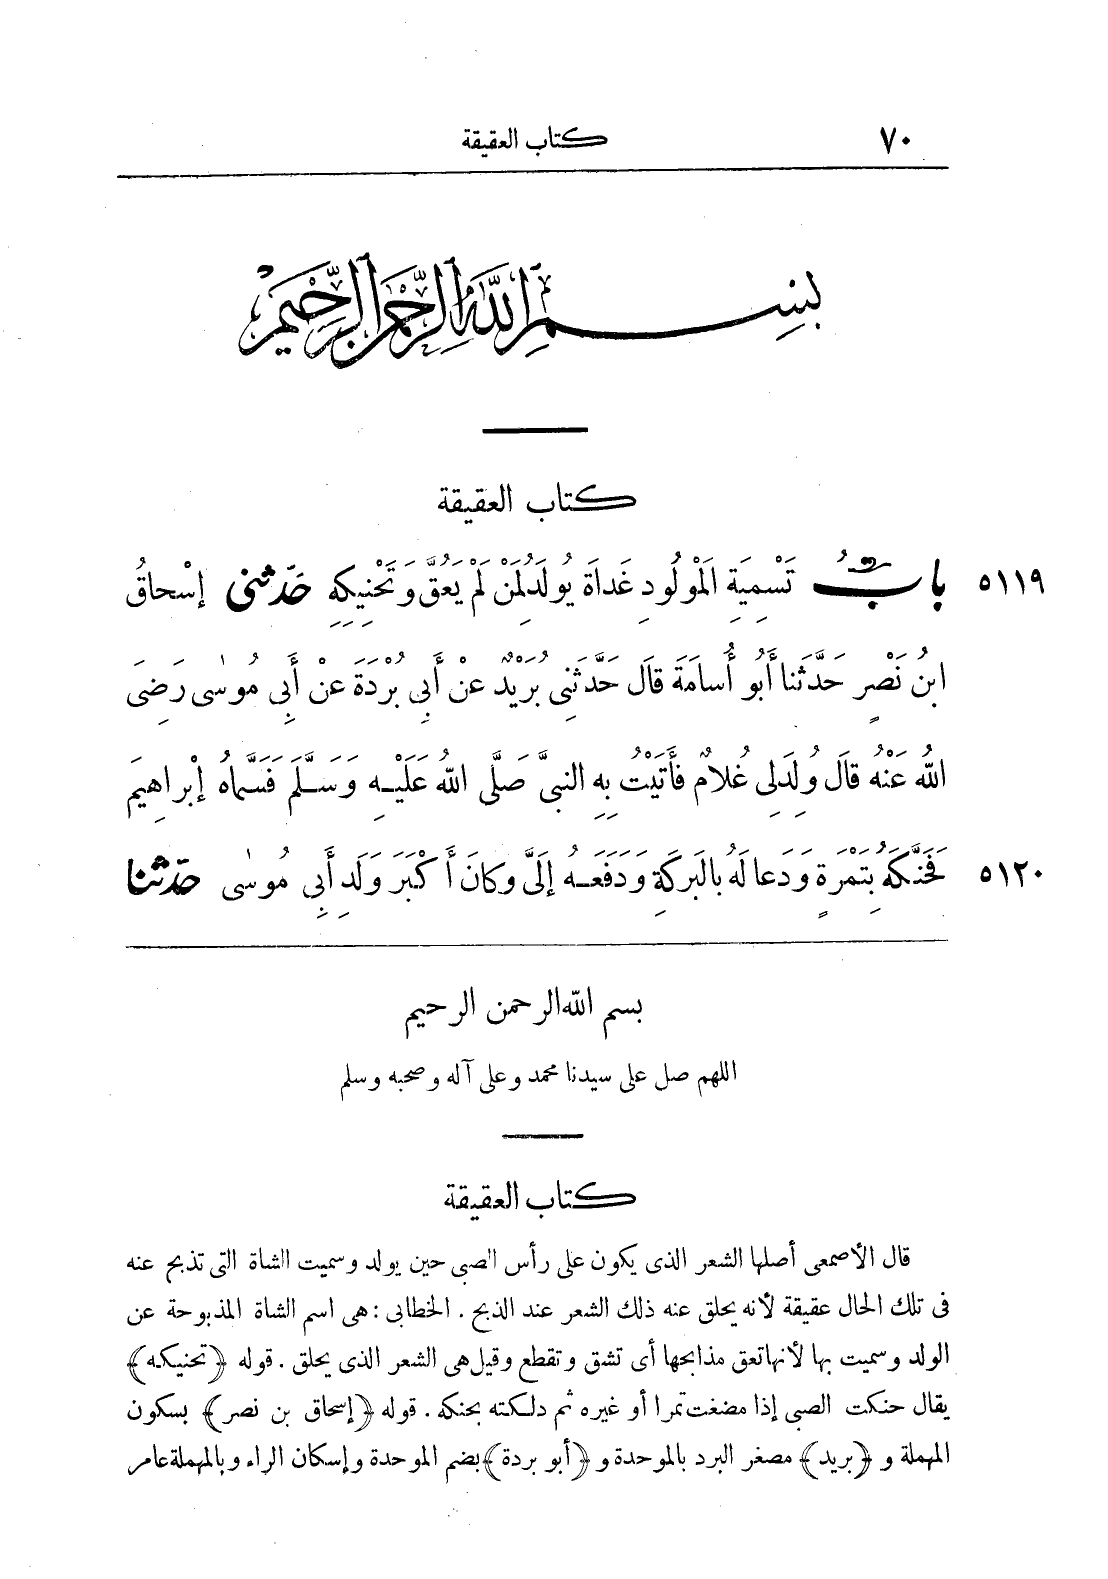 ٧٠
كتاب العقيقة
بسم الله الرحمن الرحيم
كتاب العقيقة
٥١١٩ بابُ تَسْمِيَةِ الْمَوْلُودِ غَدَاةَ يُولَدُ لِمَنْ لَمْ يَعُقَّ وَتَحْنِيكِهِ حَدّثنى إسْحاقُ
ابنُ نَصْرٍ حَدَّثَنا أَبُو أُسامَةَ قالَ حَدَّثَنِى بُرَيْدٌ عنْ أَبِى بُرْدَةَ عنْ أَبِى مُوسٰى رَضِىَ
اللهُ عَنْهُ قالَ وُلِدَ لِى غُلامٌ فأَتَيْتُ بِهِ النبىَّ صَلَّى اللهُ عَلَيْهِ وَسَلَّمَ فَسَمَّاهُ إبْراهِيمَ
٥١٢٠ فَحَنَّكَهُ بِتَمْرَةٍ وَدَعا لَهُ بالبَرَكَةِ وَدَفَعَهُ إلَىَّ وكانَ أَكْبَرَ وَلَدِ أَبِى مُوسٰى حَدّثنا
بسم الله الرحمن الرحيم
اللهم صل على سيدنا محمد وعلى آله وصحبه وسلم
كتاب العقيقة
قال الأصمعى أصلها الشعر الذى يكون على رأس الصبى حين يولد وسميت الشاة التى تذبح عنه
فى تلك الحال عقيقة لأنه يحلق عنه ذلك الشعر عند الذبح . الخطابى : هى اسم الشاة المذبوحة عن
الولد وسميت بها لأنها تعق مذابحها أى تشق وتقطع وقيل هى الشعر الذى يحلق . قوله ﴿تحنيكه﴾
يقال حنكت الصبى إذا مضغت تمرا أو غيره ثم دلكته بحنكه . قوله ﴿إسحاق بن نصر﴾ بسكون
المهملة و ﴿بريد﴾ مصغر البرد بالموحدة و ﴿أبو بردة﴾ بضم الموحدة وإسكان الراء وبالمهملة عامر